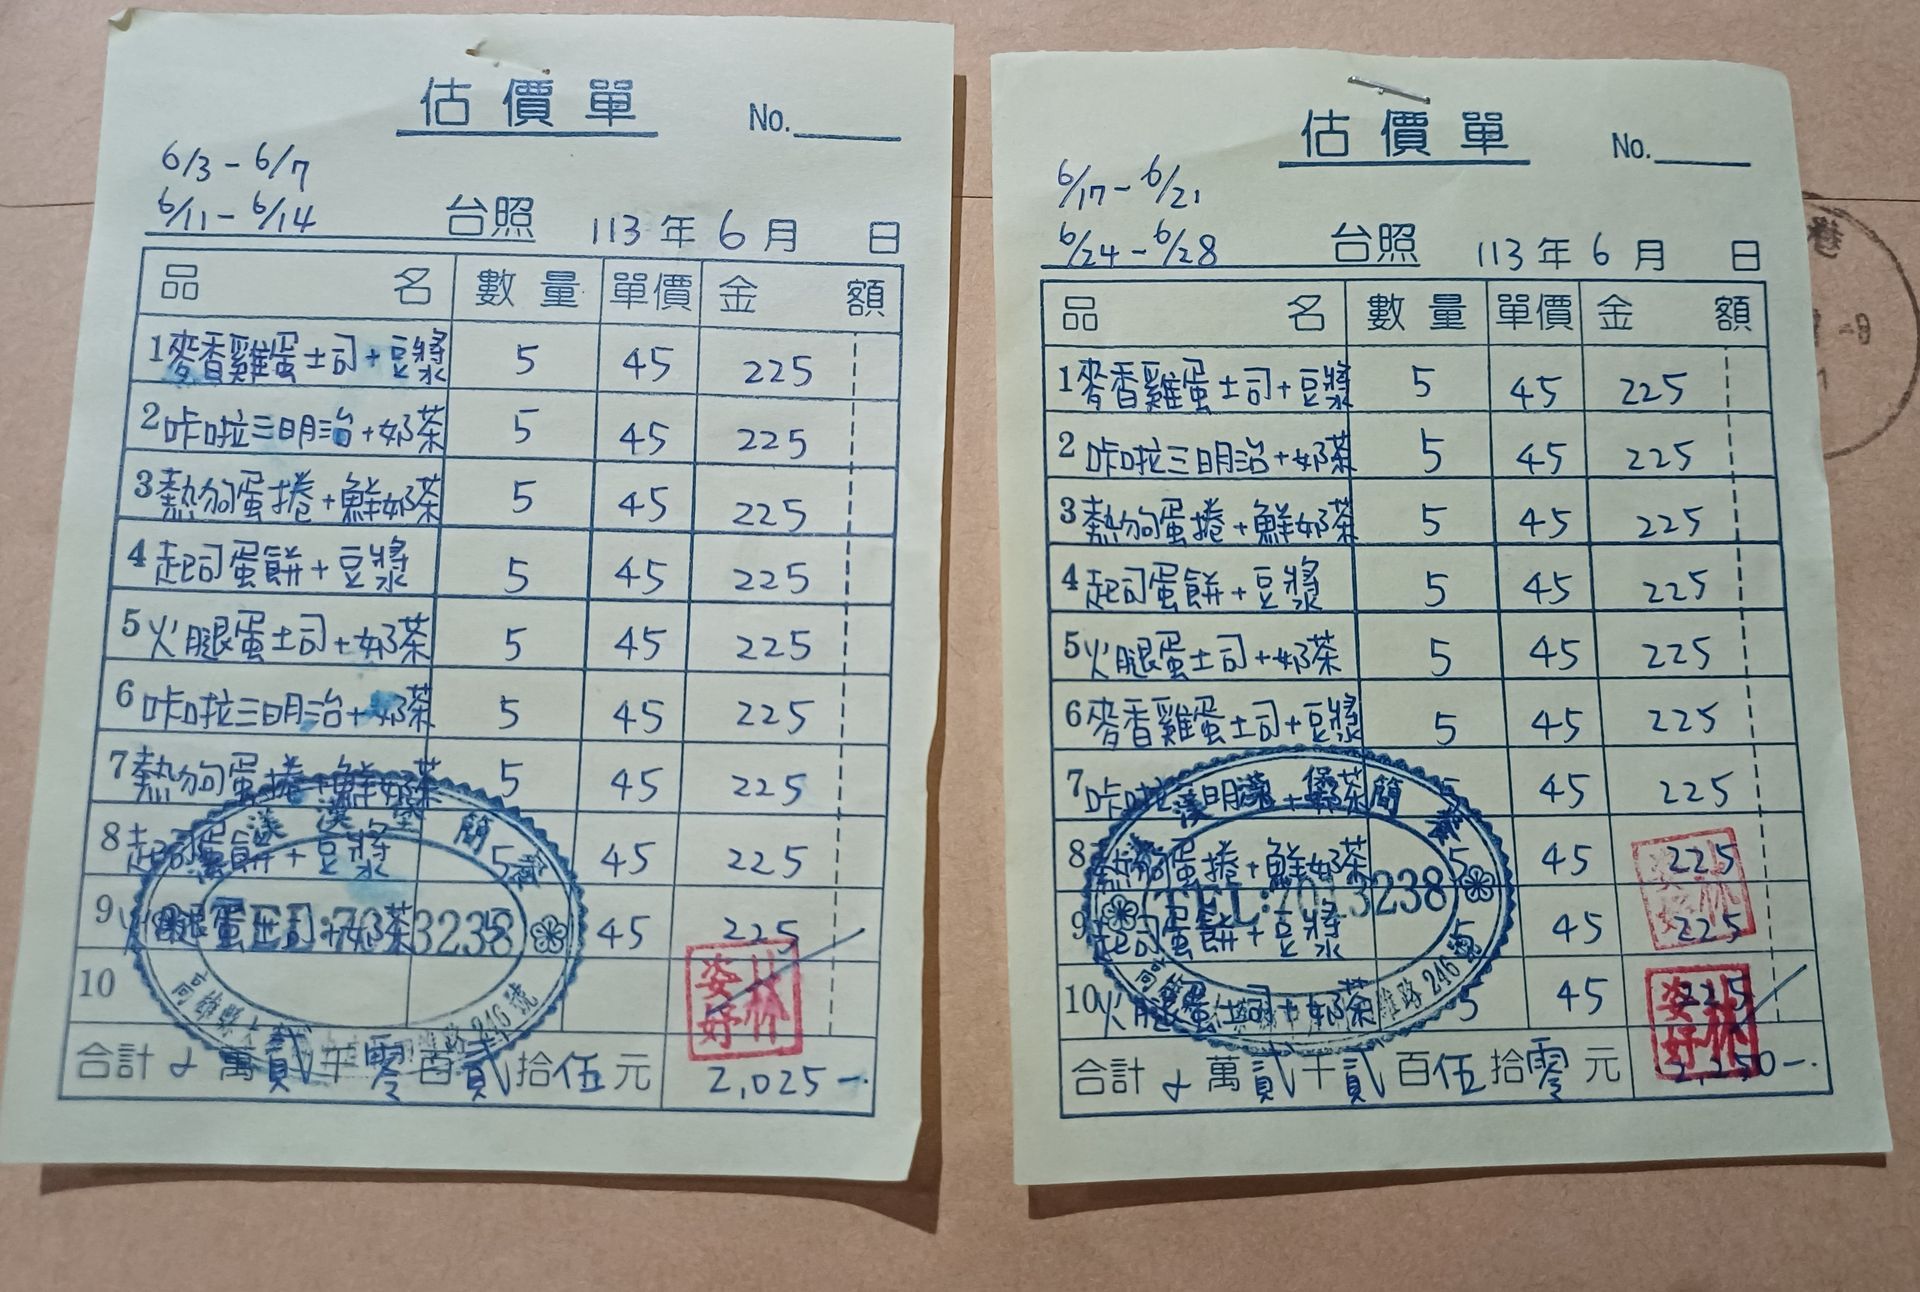 估價單
No.
6/3-6/7
6/11-6/14 台照 113年6月 日
品名 數量 單價 金額
1 麥香雞蛋土司+豆漿 5 45 225
2 咔啦三明治+奶茶 5 45 225
3 熱狗蛋捲+鮮奶茶 5 45 225
4 起司蛋餅+豆漿 5 45 225
5 火腿蛋土司+奶茶 5 45 225
6 咔啦三明治+奶茶 5 45 225
7 熱狗蛋捲+鮮奶茶 5 45 225
8 起司蛋餅+豆漿 5 45 225
9 火腿蛋土司+奶茶 45 225
10
合計 萬貳千零百貳拾伍元 2,025-.
3238
246號
林姿妤
估價單
No.
6/17-6/21
6/24-6/28 台照 113年6月 日
品名 數量 單價 金額
1 麥香雞蛋土司+豆漿 5 45 225
2 咔啦三明治+奶茶 5 45 225
3 熱狗蛋捲+鮮奶茶 5 45 225
4 起司蛋餅+豆漿 5 45 225
5 火腿蛋土司+奶茶 5 45 225
6 麥香雞蛋土司+豆漿 5 45 225
7 咔啦三明治+奶茶 5 45 225
8 熱狗蛋捲+鮮奶茶 5 45 225
9 起司蛋餅+豆漿 5 45 225
10 火腿蛋土司+奶茶 5 45 225
合計 萬貳千貳百伍拾零元 2,250-.
TEL: 3238
路246號
林姿妤